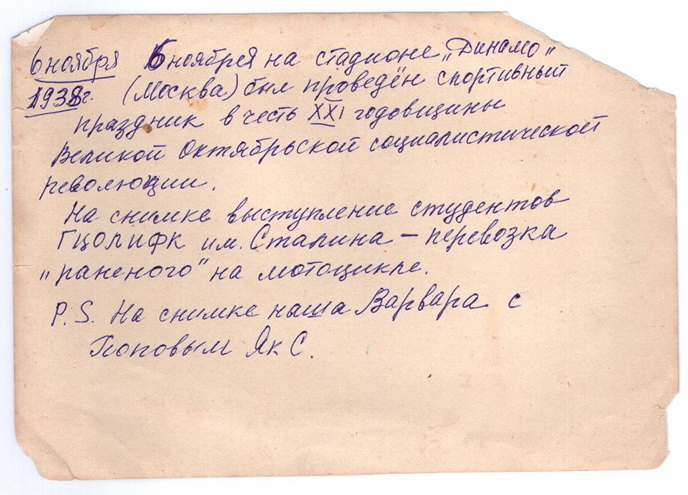 6 ноября 6 ноября на стадионе „Динамо„
1938г. (Москва) был проведён спортивный
праздник в честь XXI годовщины
Великой Октябрьской социалистической
революции.
На снимке выступление студентов
ГЦОЛИФК им. Сталина – перевозка
„раненого" на мотоцикле.
P.S. На снимке наша Варвара с
Поповым Як С.